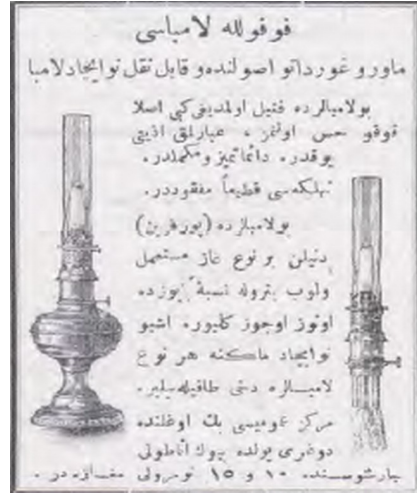 فوفولله لامباسی
ماورو غورداتو اصولنده و قابل نقل نو ایجاد لامبا
بو لامبالرده فتیل اولمدیغی کبی اصلا
قوقو حس اولنمز ، عیارلمق اذیتی
یوقدر . دائما تمیز و مکملدر .
تهلکه سی قطعیاً مفقوددر .
بو لامبالرده (پورفرین)
دنیلن بر نوع غاز مستعمل
اولوب بتروله نسبةً یوزده
اوتوز اوجوز کلیور . اشبو
نو ایجاد ماکنه هر نوع
لامبالره دخی طاقیله بیلیر .
مرکز عمومیسی بك اوغلنده
دوغری یولده بیوك آناطولی
چارشوسنده ١٠ و ١٥ نومرولی مغازه در .